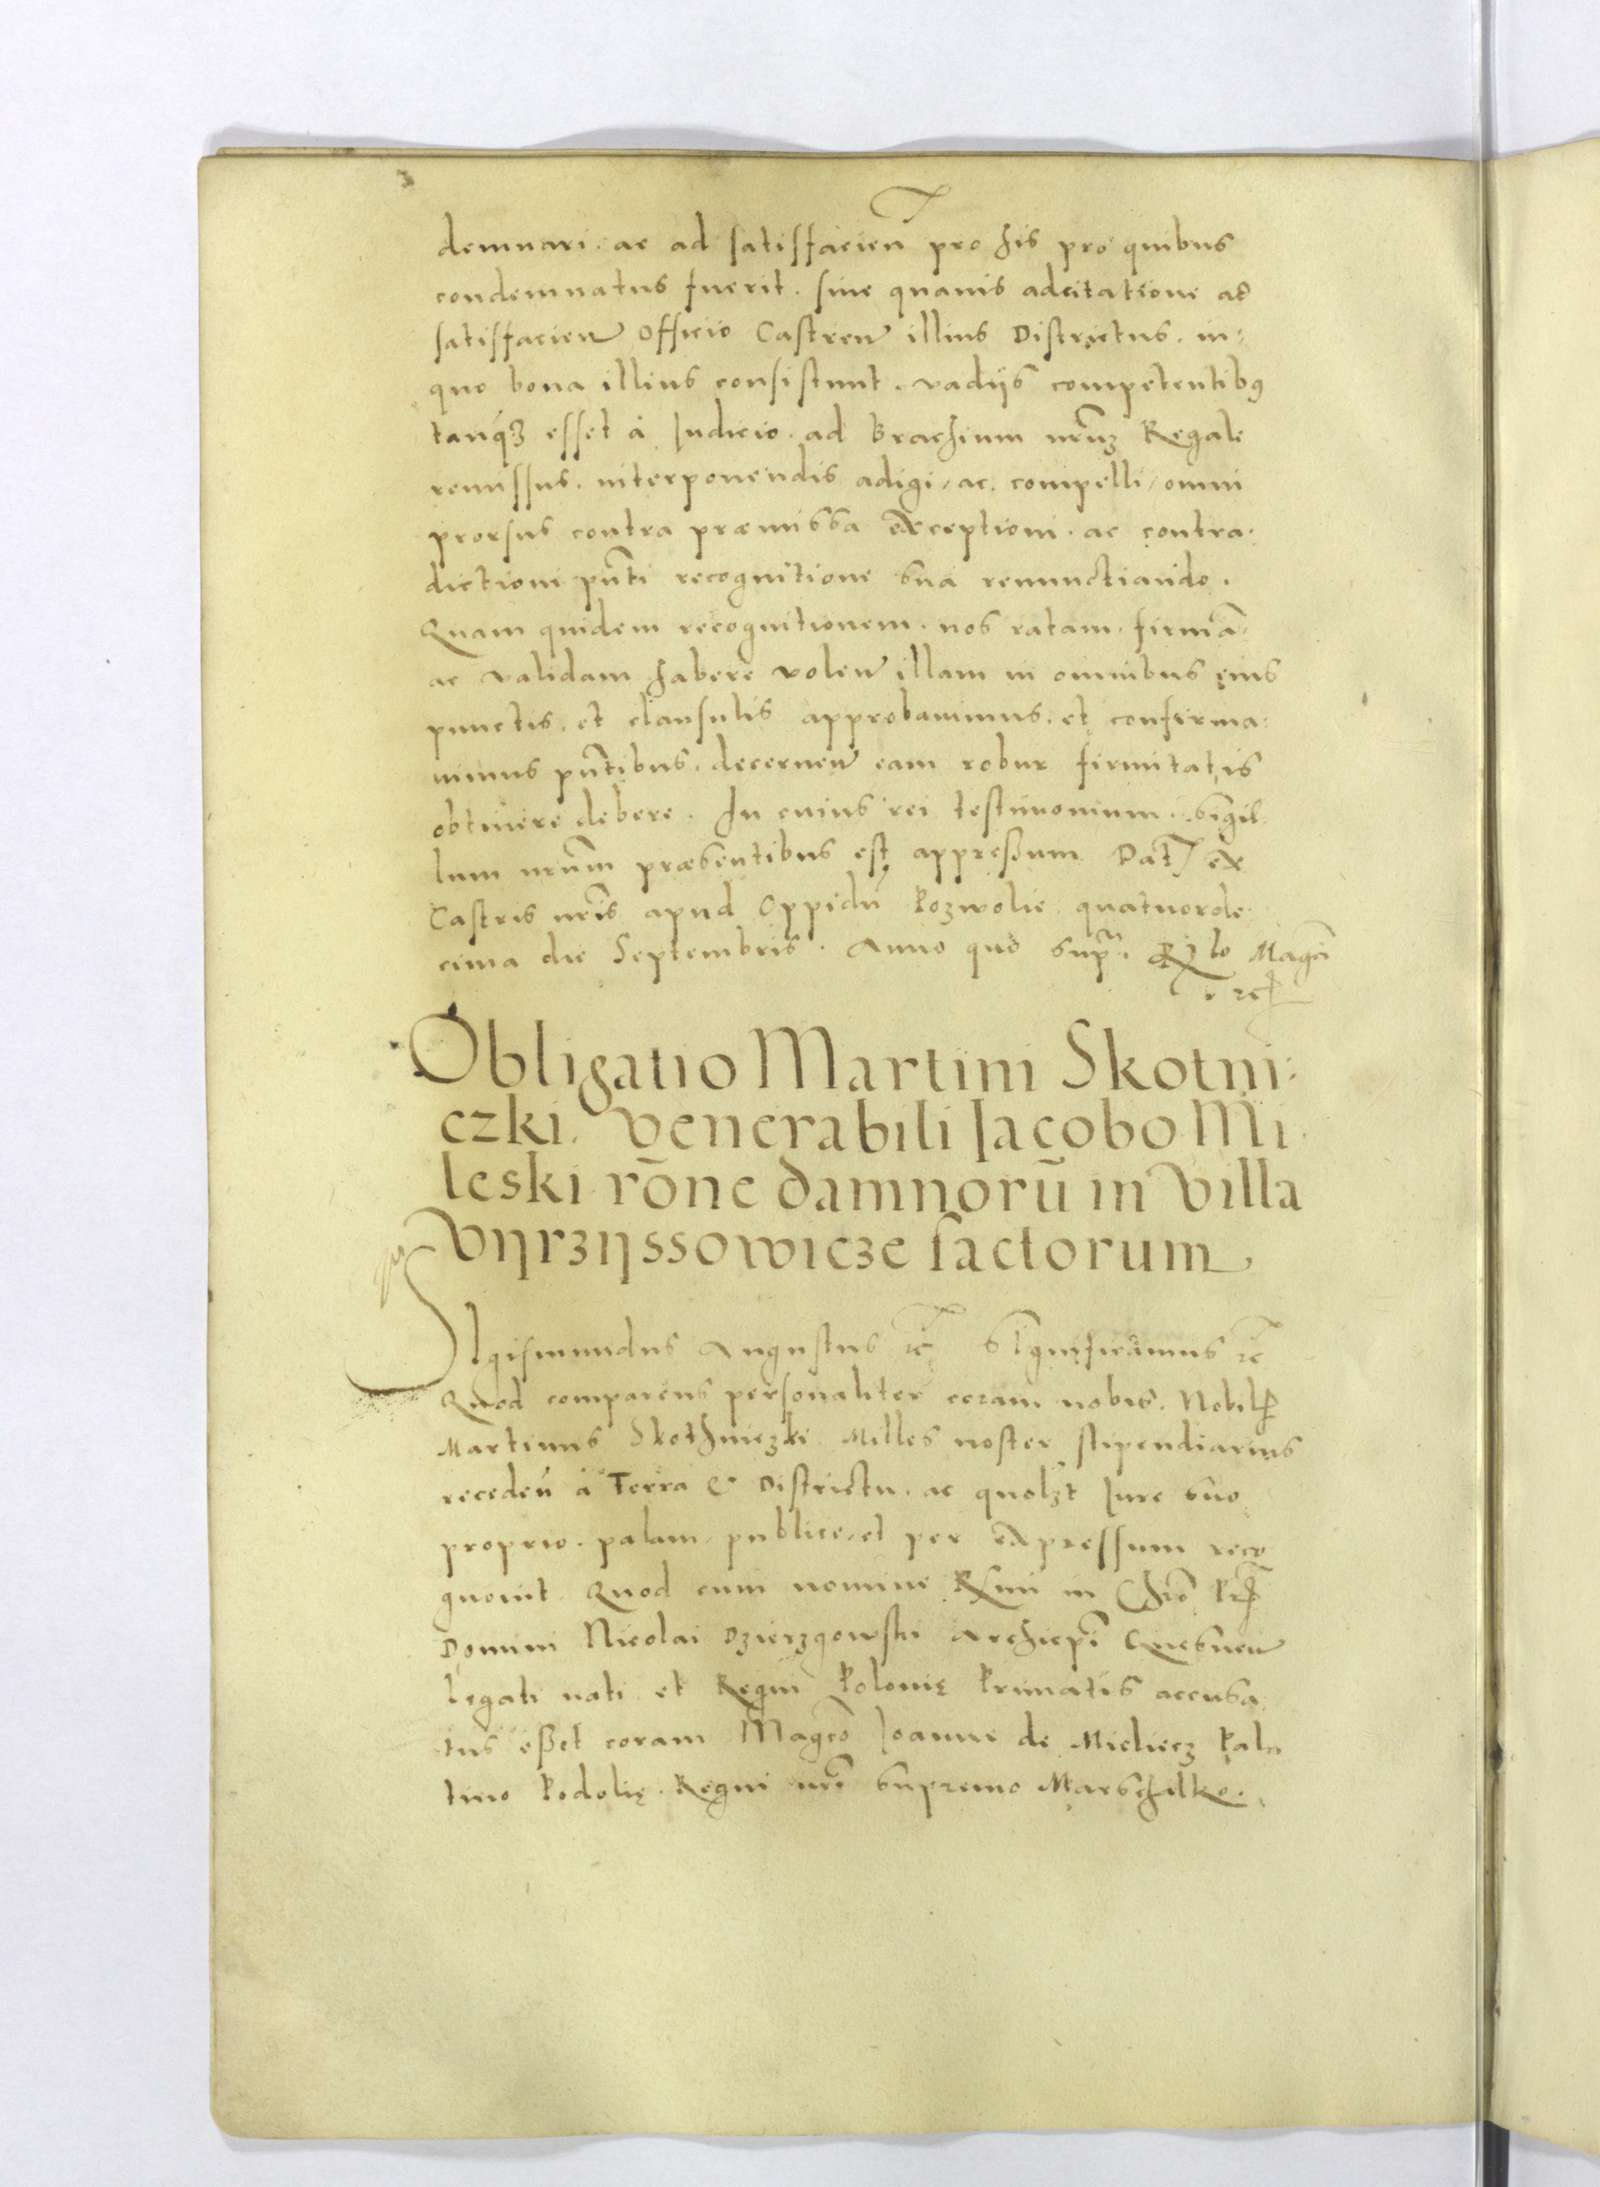 demnari. ac ad satisfacien pro his pro quibus
condemnatus fuerit. sine quavis adcitatione ad
satisfacien Officio Castren illius Districtus. in:
quo bona illius consistunt. vadijs competentibꝰ
tanqꝫ esset à Iudicio. ad Brachium nrũꝫ Regale
remissus. interponendis adigi, ac. compelli, omni
prorsus contra præmissa exceptioni. ac contra.
dictioni pñti recognitione sua renunctiando.
Quam quidem recognitionem. nos ratam. firmã.
ac validam habere volen illam in omnibus eius
punctis. et clausulis approbavimus. et confirma:
vimus pñtibus. decernen eam robur firmitatis
obtinere debere. In cuius rei testimonium. Sigil.
lum nrũm præsentibus est appressum Dat ex
Castris nrĩs apud Oppidũ Pozwolie quatuorde.
cima die Septembris. Anno quo sup. Rlo Magci
Obligatio Martini Skotni:
czki. Venerabili Iacobo Mi.
leski rõne damnorũ in Villa
Vijrzijssowicze factorum
Sigismundus Augustus ⁊c̃ Significamus ⁊c̃
Quod comparens personaliter coram nobis. Nobil
Martinus Skothniczki Milles noster stipendiarius
receden à Terra & Districtu. ac quolꝫt Iure suo
proprio. palam, publice, et per expressum reco
gnovit. Quod cum nomine Rmi in Chrõ Pr
Domini Nicolai Dzierzgowski Archiepĩ Gnesnen
legati nati. et Regni Polonię Primatis accusa
tus esset coram Magco Ioanne de Mieliecz Pala
tino Podolię. Regni nrĩ Supremo Marschalko.